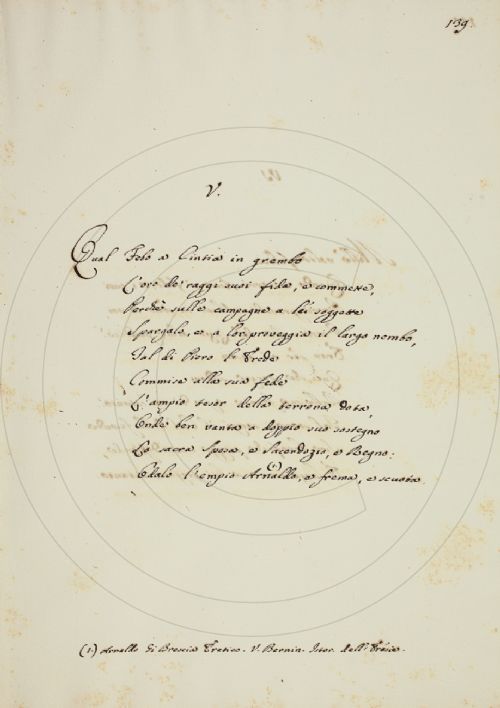 139.
V.
Qual Febo a Cintia in grembo
L'oro de' raggi suoi fida, e commette,
Perchè sulle campagne a lei soggette
Spargalo, e a lor proveggia il largo nembo,
Tal di Piero l'Erede
Commise alla sua fede
L'ampio tesor della terrena dota,
Onde ben vanta a doppio suo sostegno
La sacra Sposa, e Sacerdozio, e Regno:
Odalo l'empio Arnaldo, e frema, e scuota
(1)
(1.) Arnaldo di Brescia Eretico. V. Bernin. Istor. dell'Eresie.